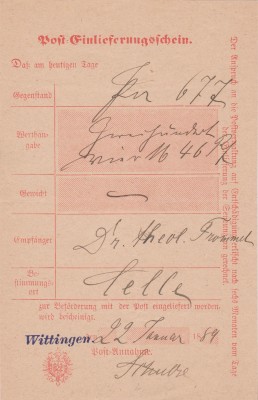 Post-Einlieferungsschein.
Daß am heutigen Tage
Gegenstand
677
Werthangabe
Zweihundert
vier M 46
Gewicht
Empfänger
Dr. theol. Frommel
Bestimmungsort
Celle
zur Beförderung mit der Post eingeliefert worden,
wird bescheinigt.
Wittingen, 22 Januar 1889
Post-Annahme.
Schulze
Der Anspruch an die Postverwaltung auf Entschädigung erlischt nach sechs Monaten vom Tage
der Einlieferung der Sendung an gerechnet.